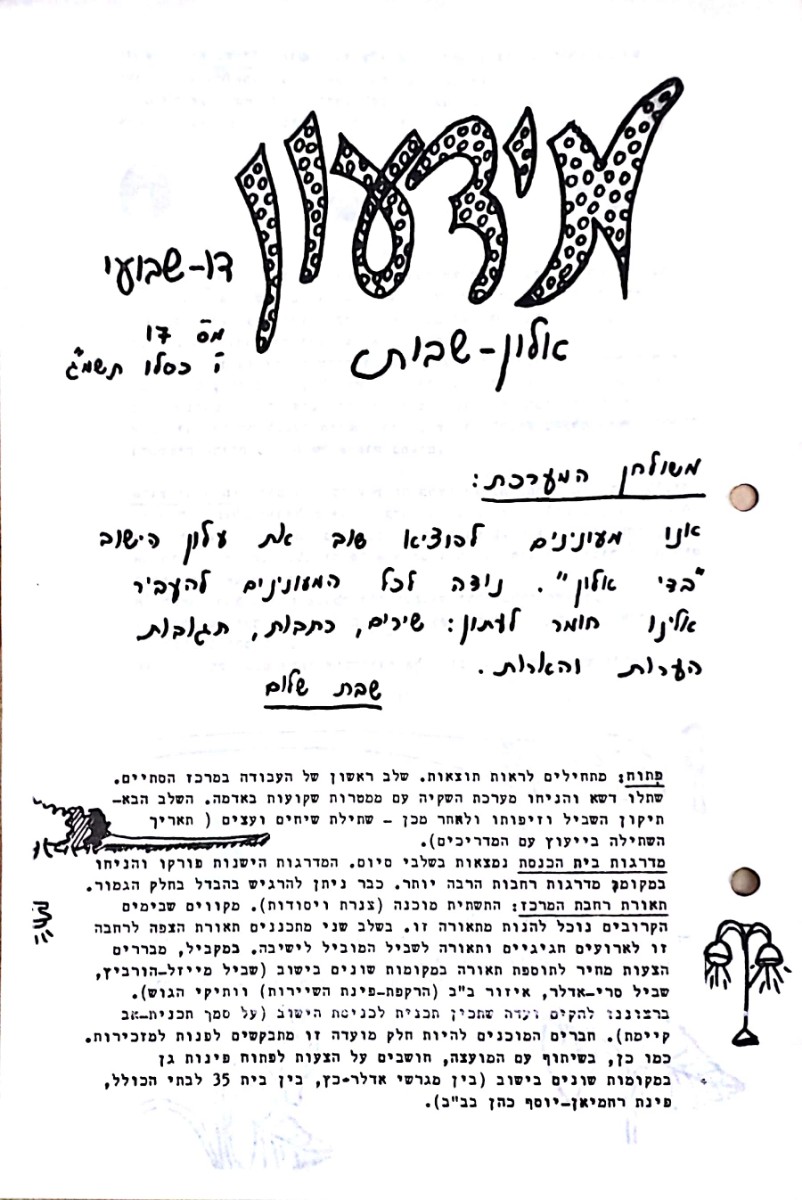 מידעון
דו-שבועי
אלון-שבות
מס 17
ה' כסלו תשמ"ג
משולחן המערכת:
אנו מעונינים להוציא שוב את עלון הישוב
"בדי אלון". נודה לכל המעונינים להעביר
אלינו חומר לעתון: שירים, כתבות, תגובות
הערות והארות.
שבת שלום
פתוח: מתחילים לראות תוצאות. שלב ראשון של העבודה במרכז הסתיים.
שתלו דשא והניחו מערכת השקיה עם ממטרות שקועות באדמה. השלב הבא-
תיקון השביל וזיפותו ולאחר מכן - שתילת שיחים ועצים ( תאריך
השתילה בייעוץ עם המדריכים).
מדרגות בית הכנסת נמצאות בשלבי סיום. המדרגות הישנות פורקו והניחו
במקומן מדרגות רחבות הרבה יותר. כבר ניתן להרגיש בהבדל בחלק הגמור.
תאורת רחבת המרכז: התשתית מוכנה (צנרת ויסודות). מקווים שבימים
הקרובים נוכל להנות מתאורה זו. בשלב שני מתכננים תאורת הצפה לרחבה
זו לארועים חגיגיים ותאורה לשביל המוביל לישיבה. במקביל, מבררים
הצעות מחיר לתוספת תאורה במקומות שונים בישוב (שביל מייזל-הורביץ,
שביל סרי-אדלר, איזור ב"ב (הרקפת-פינת השיירות) וותיקי הגוש).
ברצוננו להקים ועדה שתכין תכנית לכניסת הישוב (על סמך תכנית-אב
קיימת). חברים המוכנים להיות חלק מועדה זו מתבקשים לפנות למזכירות.
כמו כן, בשיתוף עם המועצה, חושבים על הצעות לפתוח פינות גן
במקומות שונים בישוב (בין מגרשי אדלר-כץ, בין בית 35 לבתי הכולל,
פינת רחמיאן-יוסף כהן בב"ב).